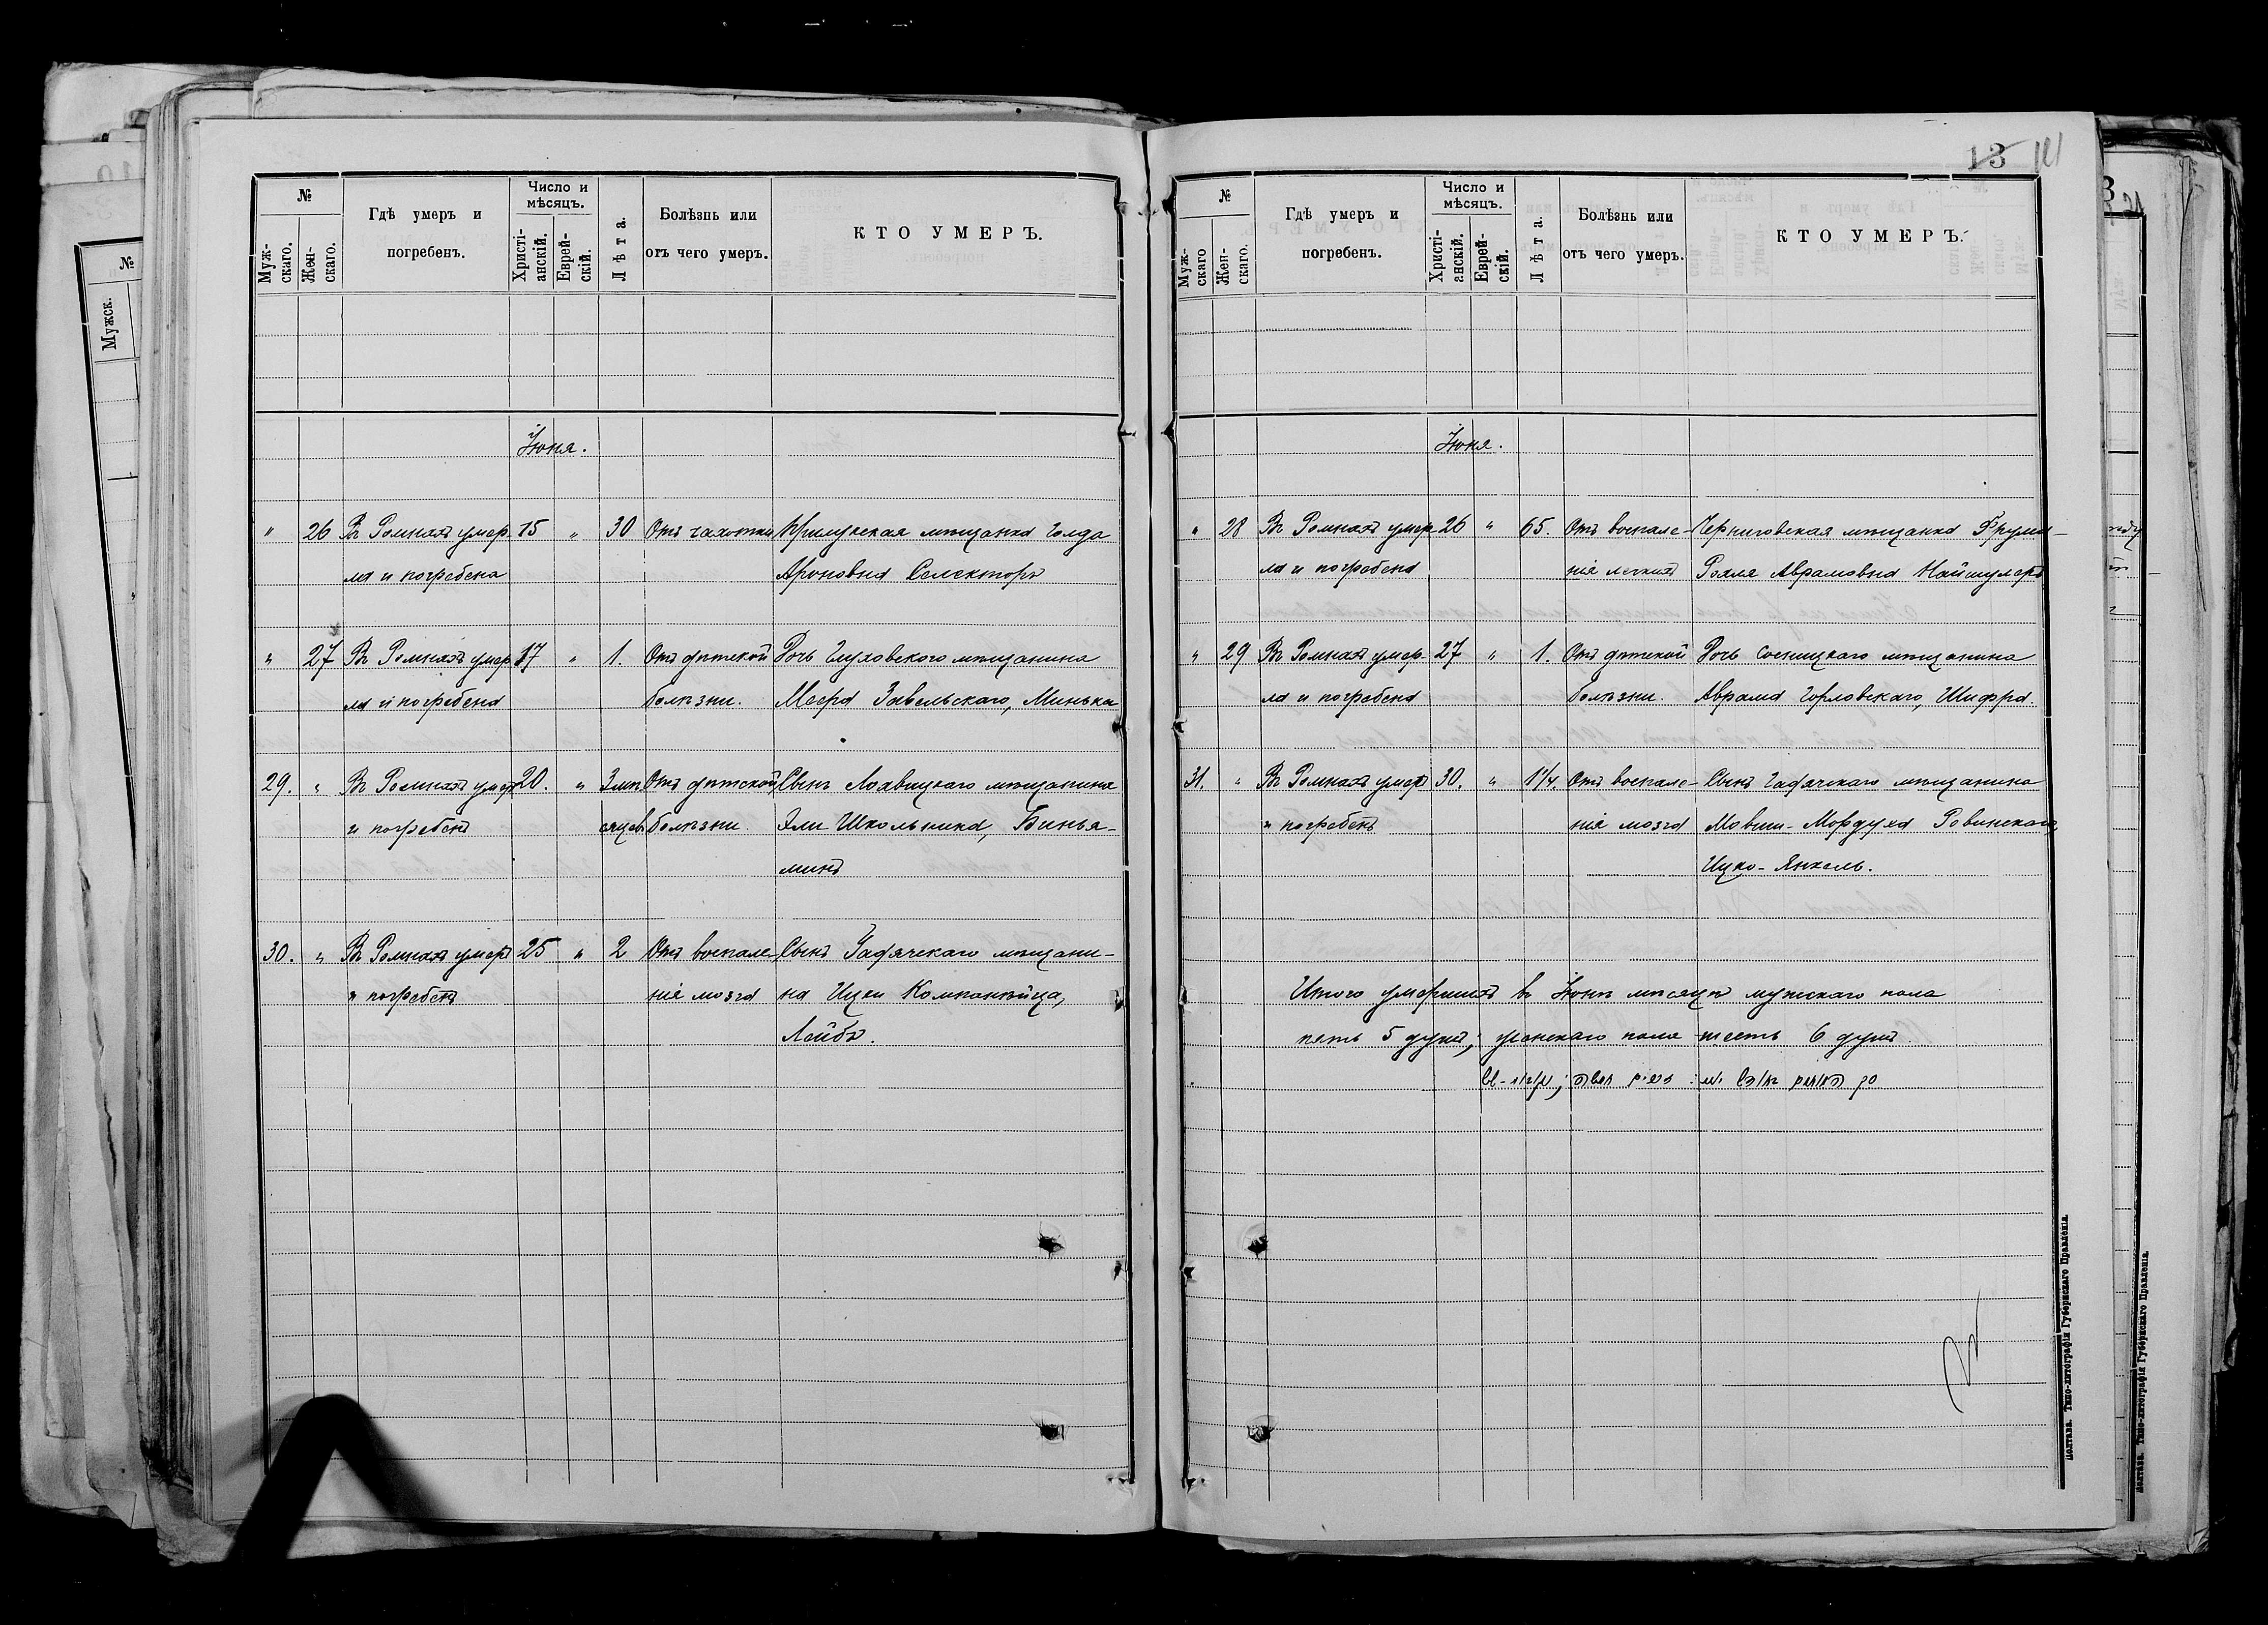 №
Гдѣ умеръ и погребенъ.
Число и мѣсяцъ.
Лѣта.
Болѣзнь или отъ чего умеръ.
КТО УМЕРЪ.
Муж-скаго.
Жен-скаго.
Христі-анскій.
Еврей-скій.
Іюня.
" 26 Въ Ромнахъ умер- 15 " 30 Отъ чахотки Прилукская мѣщанка Голда
ла и погребена Ароновна Селекторъ
" 27 Въ Ромнахъ умер- 17 " 1. Отъ дѣтской Дочь Глуховского мѣщанина
ла и погребена болѣзни. Меера Завельскаго, Минька
29. " Въ Ромнахъ умеръ 20. " 3 мѣ- Отъ дѣтской Сынъ Лохвицкаго мѣщанина
и погребенъ сяцев болѣзни. Эли Школьника, Бинья-
минъ
30. " Въ Ромнахъ умеръ 25 " 2 Отъ воспале- Сынъ Гадячскаго мѣщани-
и погребенъ нія мозга на Ицки Компанѣйца,
Лейба.
13
№
Гдѣ умеръ и погребенъ.
Число и мѣсяцъ.
Лѣта.
Болѣзнь или отъ чего умеръ.
КТО УМЕРЪ.
Муж-скаго
Жен-скаго.
Христі-анскій.
Еврей-скій.
Іюня.
" 28 Въ Ромнахъ умер- 26 " 65. Отъ воспале- Черниговская мѣщанка Фрума-
ла и погребена нія легкихъ Рохля Аврамовна Наймулеръ
" 29 Въ Ромнахъ умер- 27 " 1. Отъ дѣтской Дочь Сосницкаго мѣщанина
ла и погребена болѣзни. Аврама Горловскаго, Шифра.
31. " Въ Ромнахъ умеръ 30. " 1¼. Отъ воспале- Сынъ Гадячскаго мѣщанина
и погребенъ нія мозга Мовши-Мордуха Ровинскаго,
Ицко-Янкель.
Итого умершихъ въ Іюнѣ мѣсяцѣ мужскаго пола
пять 5 душъ, женскаго пола шесть 6 душъ.
Полтава. Типо-литографія Губернскаго Правленія.
№
Мужск.
Полтава. Типо-литографія Губернскаго Правленія.